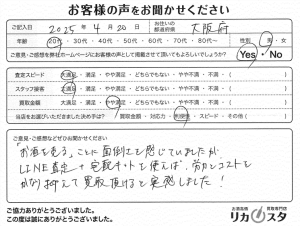 お客様の声をお聞かせください
ご記入日 2025年 4月 20日 お住いの都道府県 大阪府
年齢 20代・30代・40代・50代・60代・70代・80代～ 性別 男・女
ご意見・ご感想を弊社ホームページにお客様の声として掲載させて頂いてもよろしいでしょうか? Yes・No
査定スピード 大満足・満足・やや満足・どちらでもない・やや不満・不満・( )
スタッフ接客 大満足・満足・やや満足・どちらでもない・やや不満・不満・( )
買取金額 大満足・満足・やや満足・どちらでもない・やや不満・不満・( )
当店をお選びいただきました決め手は? 買取金額・対応力・利便性・スピード・その他( )
ご意見・ご感想などぜひお聞かせください
「お酒を売る」ことに面倒さを感じていましたが、
LINE査定+宅配キットを使えば、労力とコストを
かなり抑えて買取頂けると実感しました!
ご協力ありがとうございました。
この度は誠にありがとうございました。
お酒高価買取専門店
リカスタ